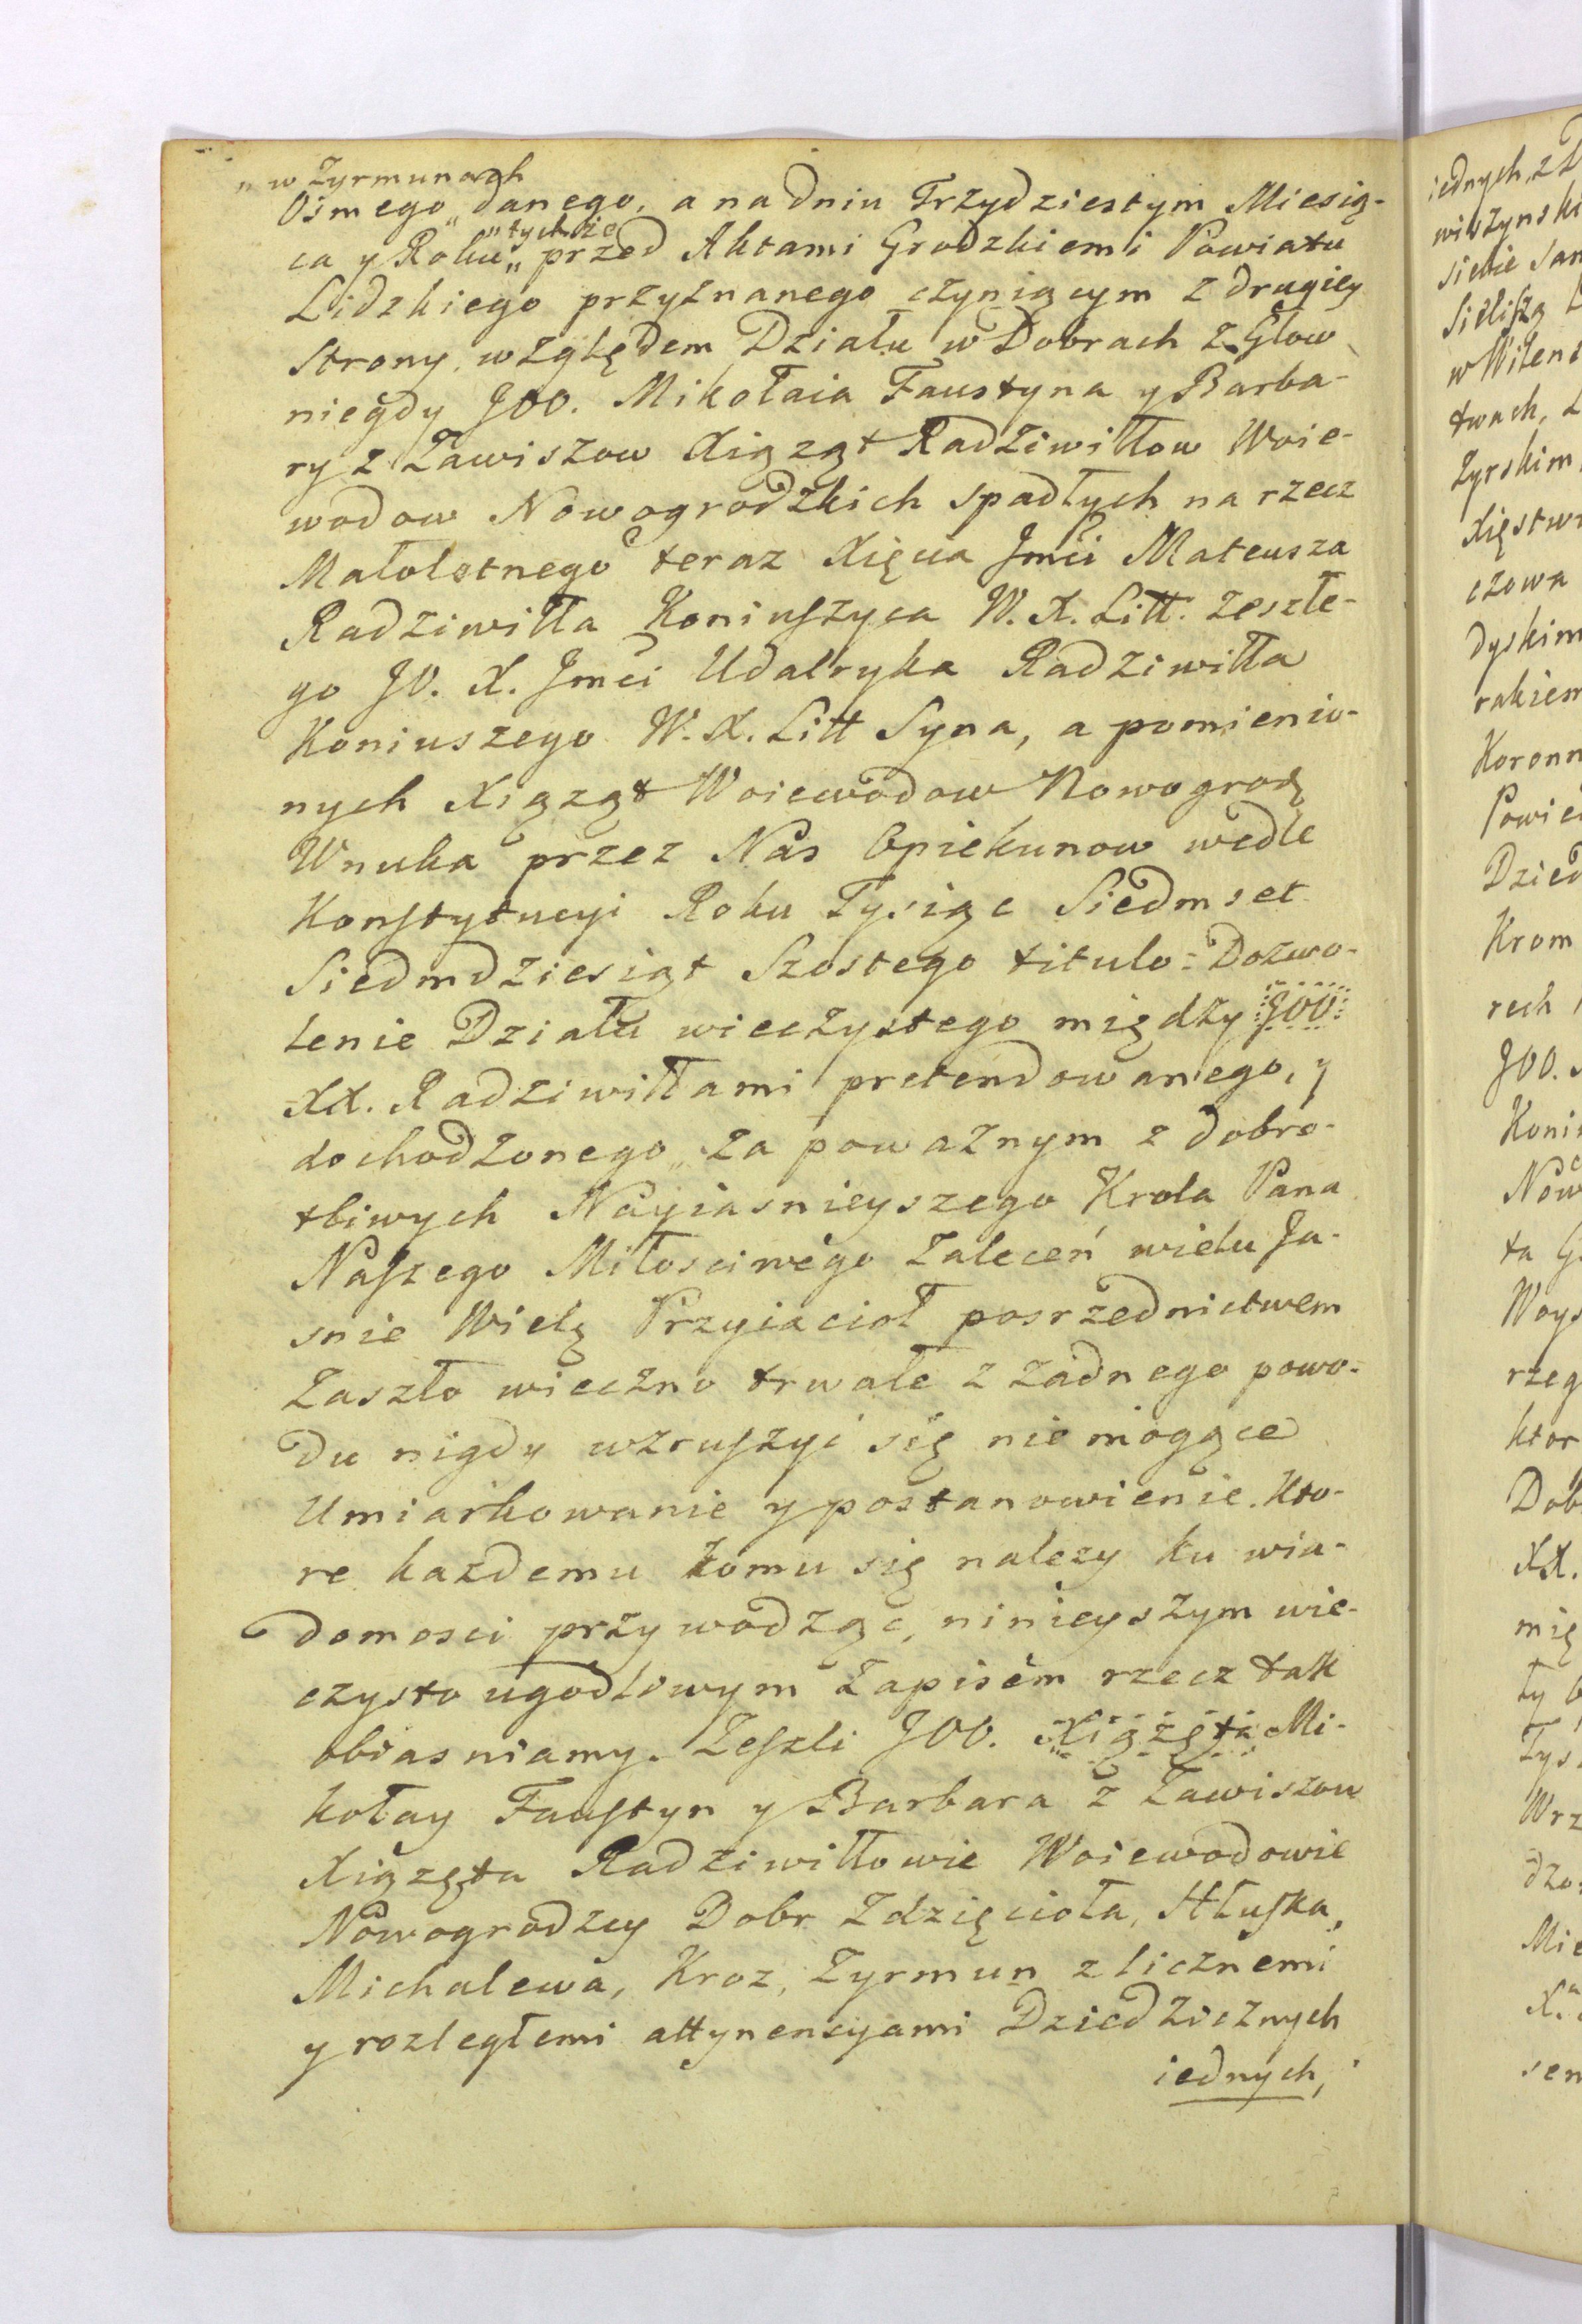 " w Zyrmunach
Osmego " danego, a na dniu Trzydziestym Miesią-
" tychże
ca y Roku " przed Aktami Grodzkiemi Powiatu
Lidzkiego przyznanego czyniącym z drugiey
strony, względem Działu w Dobrach z Głow
niegdy JOO. Mikołaia Faustyna y Barba-
ry z Zawiszow Xiąząt Radziwiłłow Woie-
wodow Nowogrodzkich spadłych na rzecz
Małoletnego teraz Xięcia Jmći Mateusza
Radziwiłła Koniuszyca W. X. Litt. zeszłe-
go JO. X. Jmći Udalryka Radziwiłła
Koniuszego W. X. Litt Syna, a pomienio-
nych Xiąząt Woiewodow Nowogrodz
Wnuka przez Nas Opiekunow wedle
Konstytucyi Roku Tysiąc Siedmset
Siedmdziesiąt Szostego titulo: Dozwo-
lenie Działu wieczystego między JOO
XX. Radziwiłłami pretendowanego, y
dochodzonego, za poważnym z dobro-
tliwych Nayiasnieyszego Krola Pana
Naszego Miłosciwego Zaleceń wielu Ja-
snie Wielą Przyiacioł posrzednictwem
Zaszło wieczno trwałe z żadnego powo-
du nigdy wzruszyć się nie mogące
Umiarkowanie y postanowienie. Kto-
re każdemu komu się nalezy ku wia-
domosci przywodząc, ninieyszym wie-
czysto ugodliwym Zapisem rzecz tak
obiasniamy. Zeszli JOO. Xiążęta Mi-
kołay Faustyn y Barbara z Zawiszow
Xiążęta Radziwiłłowie Woiewodowie
Nowogrodzcy Dobr Zdzięcioła, Hłuska,
Michalewa, Kroz, Zyrmun z licznemi
y rozległemi attynencyami Dziedzicznych
iednych,
iednych, z D
siebie
Koronn
Dzied
Krom
rech
JOO.
XX.